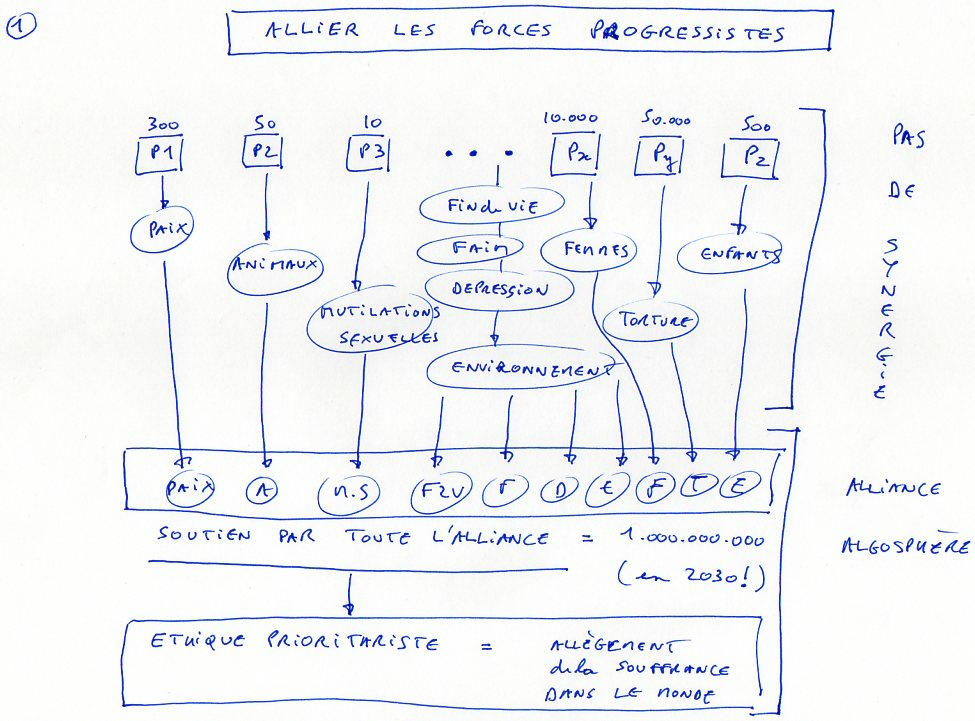 1
ALLIER LES FORCES PROGRESSISTES
300 50 10 10.000 50.000 500
P1 P2 P3 ... Px Py Pz
PAIX
ANIMAUX
MUTILATIONS
SEXUELLES
FIN de VIE
FAIM
DEPRESSION
ENVIRONNEMENT
FEMMES
TORTURE
ENFANTS
PAS
DE
SYNERGIE
PAIX A M.S F2V F D E F T E
ALLIANCE
ALGOSPHÈRE
SOUTIEN PAR TOUTE L'ALLIANCE = 1.000.000.000
(en 2030!)
ETHIQUE PRIORITARISTE = ALLÈGEMENT
de la SOUFFRANCE
DANS LE MONDE